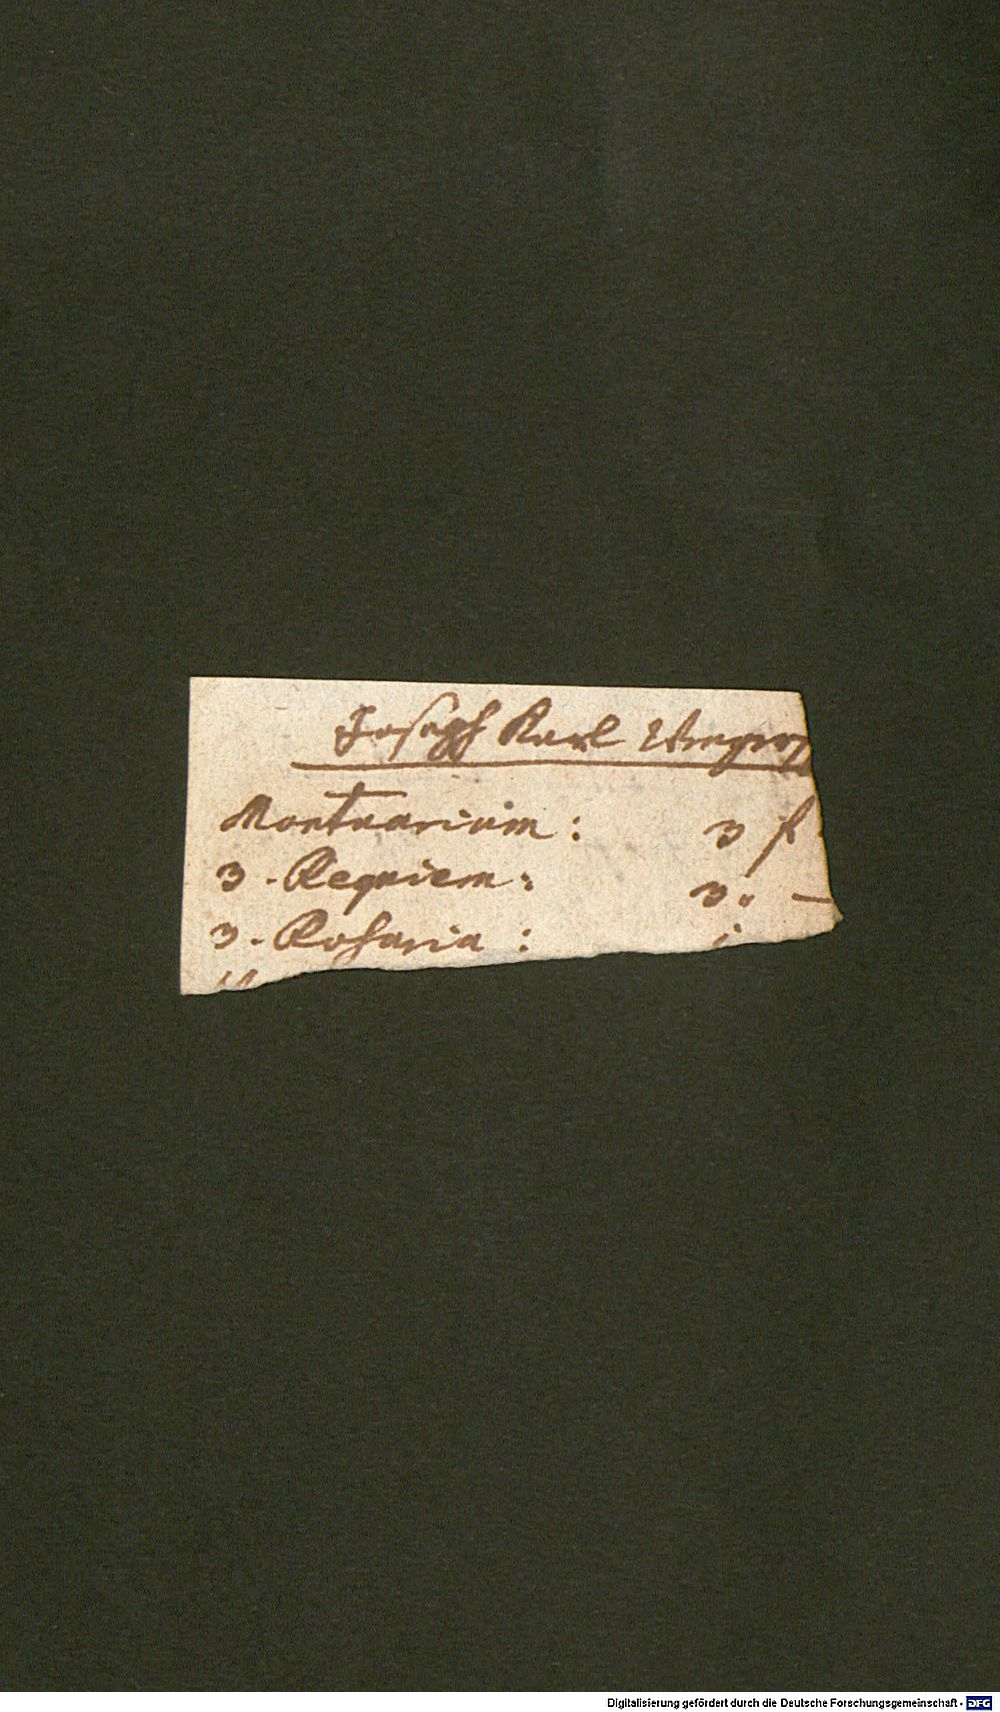 Joseph Karl
Mortuarium : 3 f
3 - Requiem : 3 " —
3 - Rosaria :
Digitalisierung gefördert durch die Deutsche Forschungsgemeinschaft - DFG